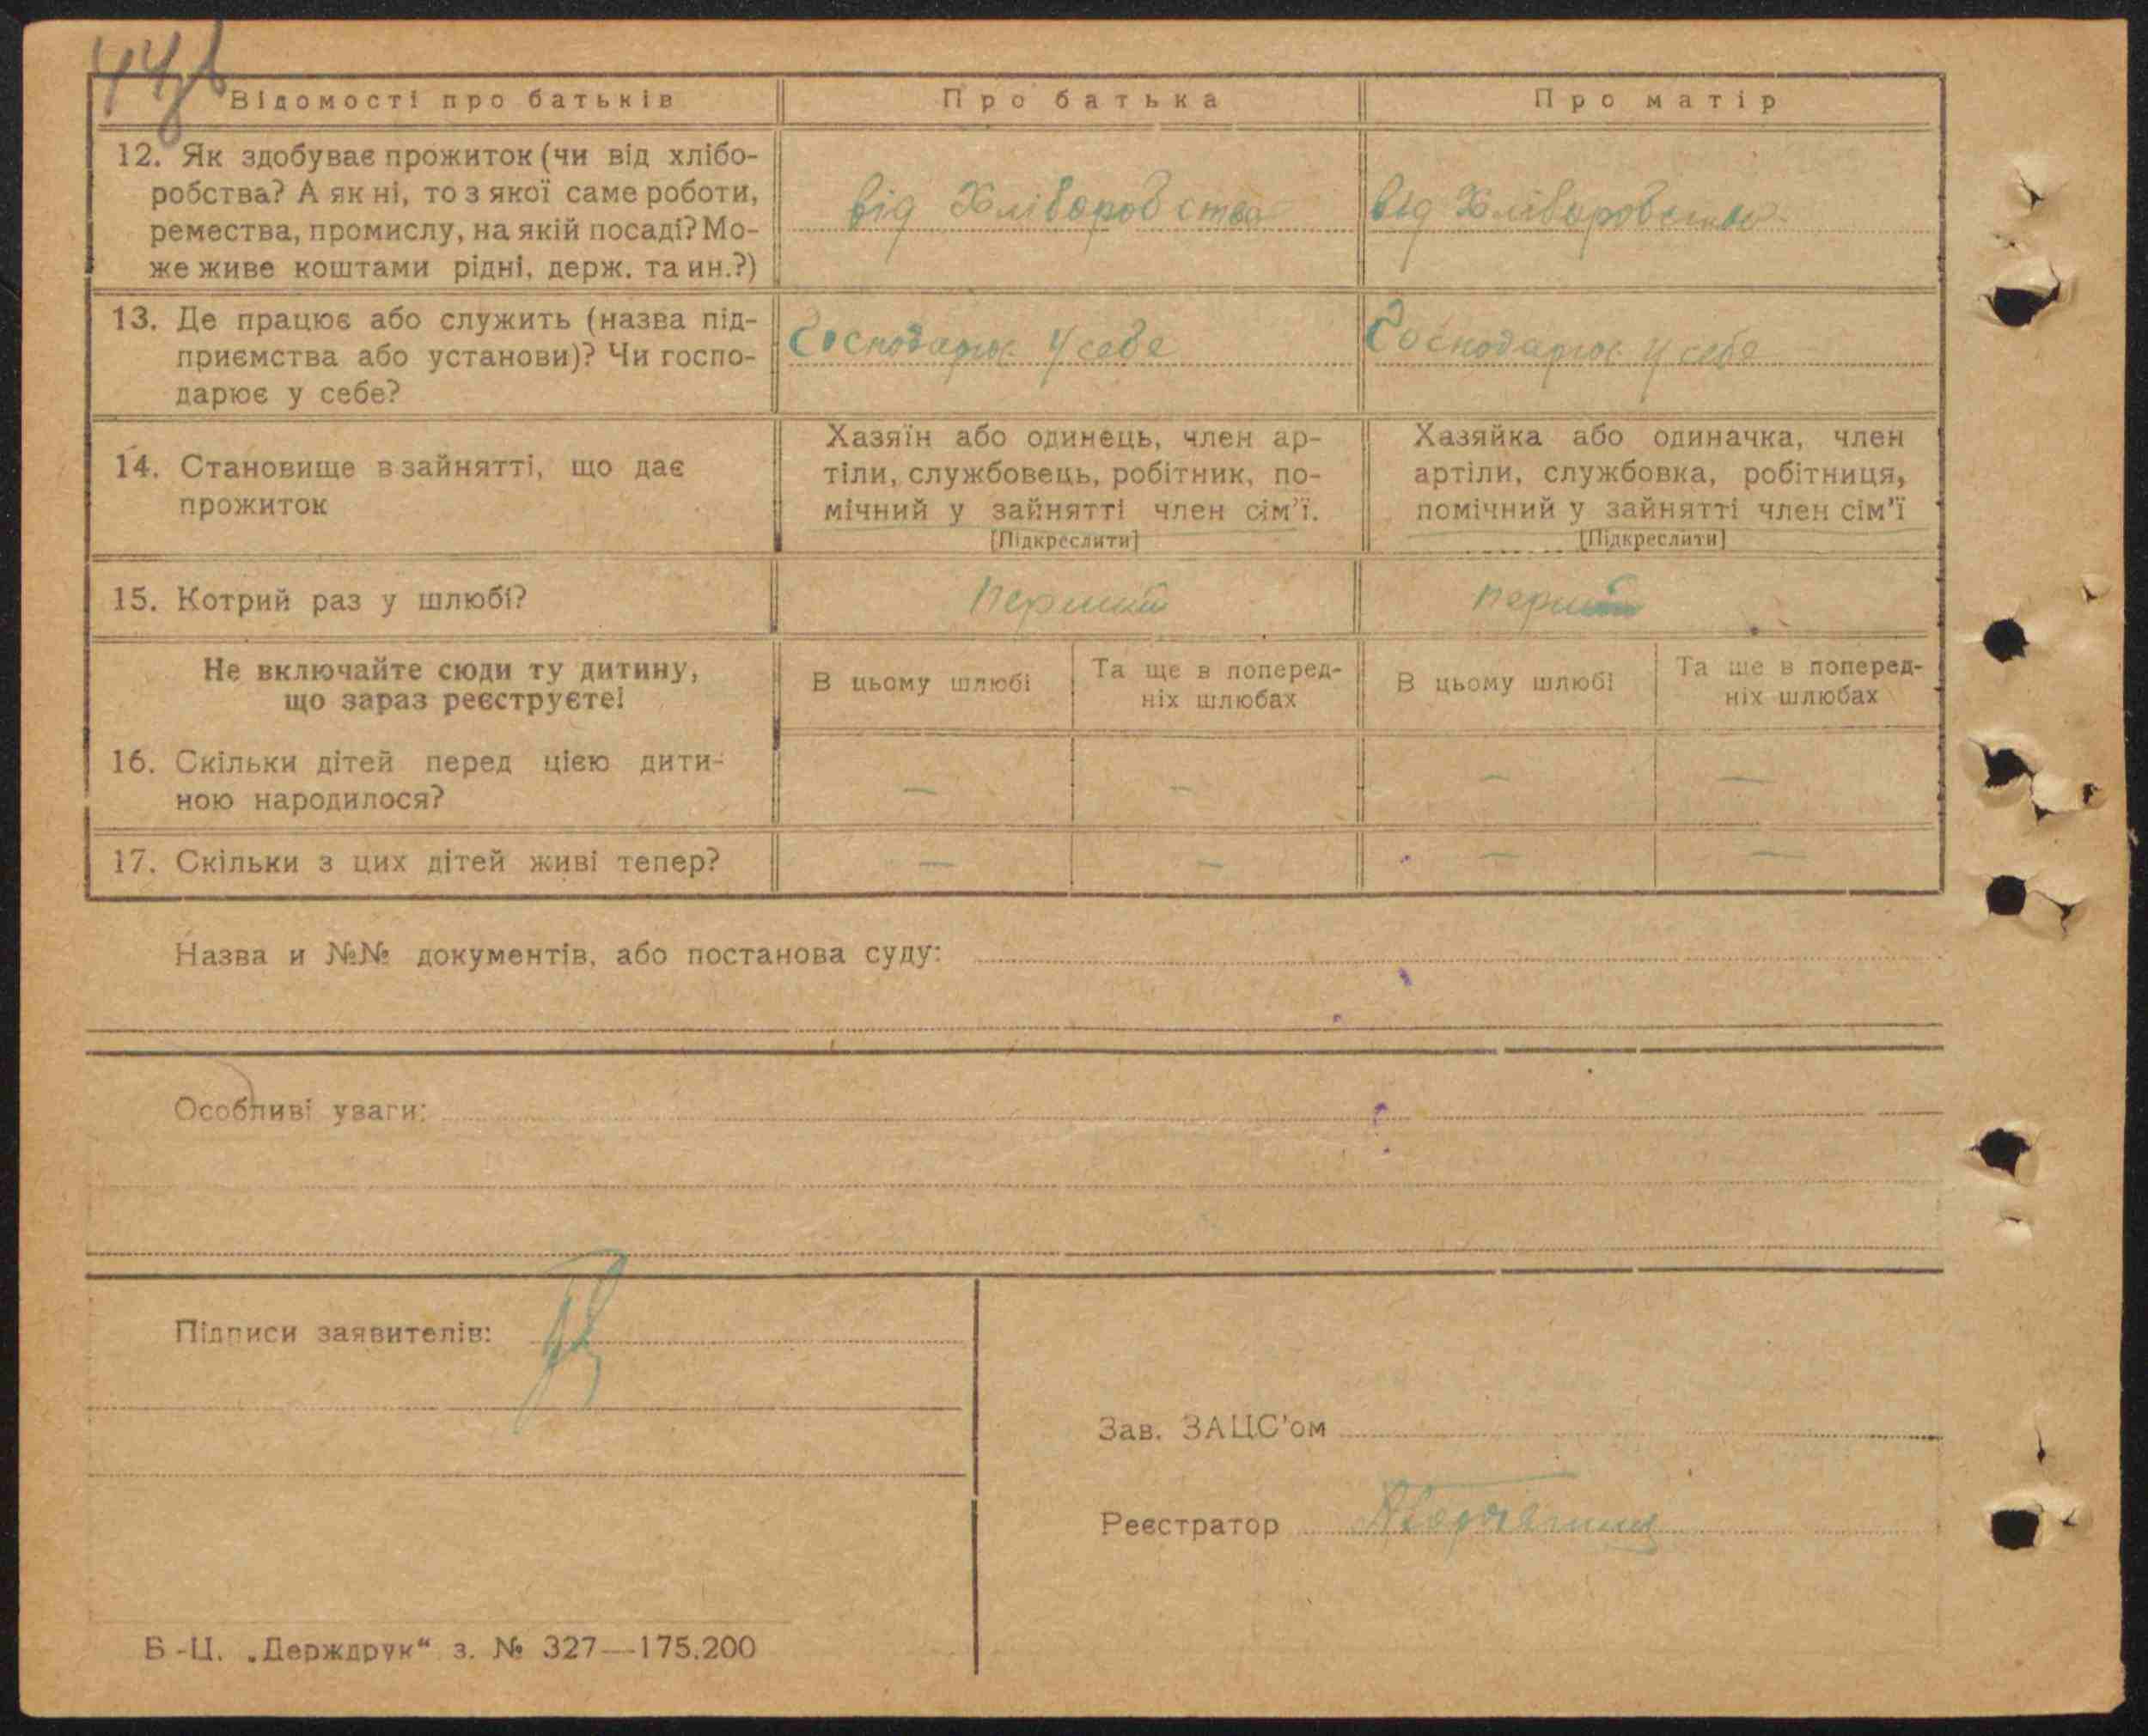 44
Відомості про батьків
Про батька
Про матір
12. Як здобуває прожиток (чи від хлібо-
робства? А як ні, то з якої саме роботи,
ремества, промислу, на якій посаді? Мо-
же живе коштами рідні, держ. та ин.?)
від Хліборобства
від Хліборобства
13. Де працює або служить (назва під-
приємства або установи)? Чи госпо-
дарює у себе?
Господарює у себе
Господарює у себе
14. Становище в зайнятті, що дає
прожиток
Хазяїн або одинець, член ар-
тіли, службовець, робітник, по-
мічний у зайнятті член сім'ї.
[Підкреслити]
Хазяйка або одиначка, член
артіли, службовка, робітниця,
помічний у зайнятті член сім'ї
[Підкреслити]
15. Котрий раз у шлюбі?
перший
перший
Не включайте сюди ту дитину,
що зараз реєструєте!
В цьому шлюбі
Та ще в поперед-
ніх шлюбах
В цьому шлюбі
Та ще в поперед-
ніх шлюбах
16. Скільки дітей перед цією дити-
ною народилося?
— — — —
17. Скільки з цих дітей живі тепер?
— — — —
Назва и №№ документів, або постанова суду:
Особливі уваги:
Підписи заявителів:
Зав. ЗАЦС'ом
Реєстратор
Б-Ц. „Держдрук" з. № 327—175.200